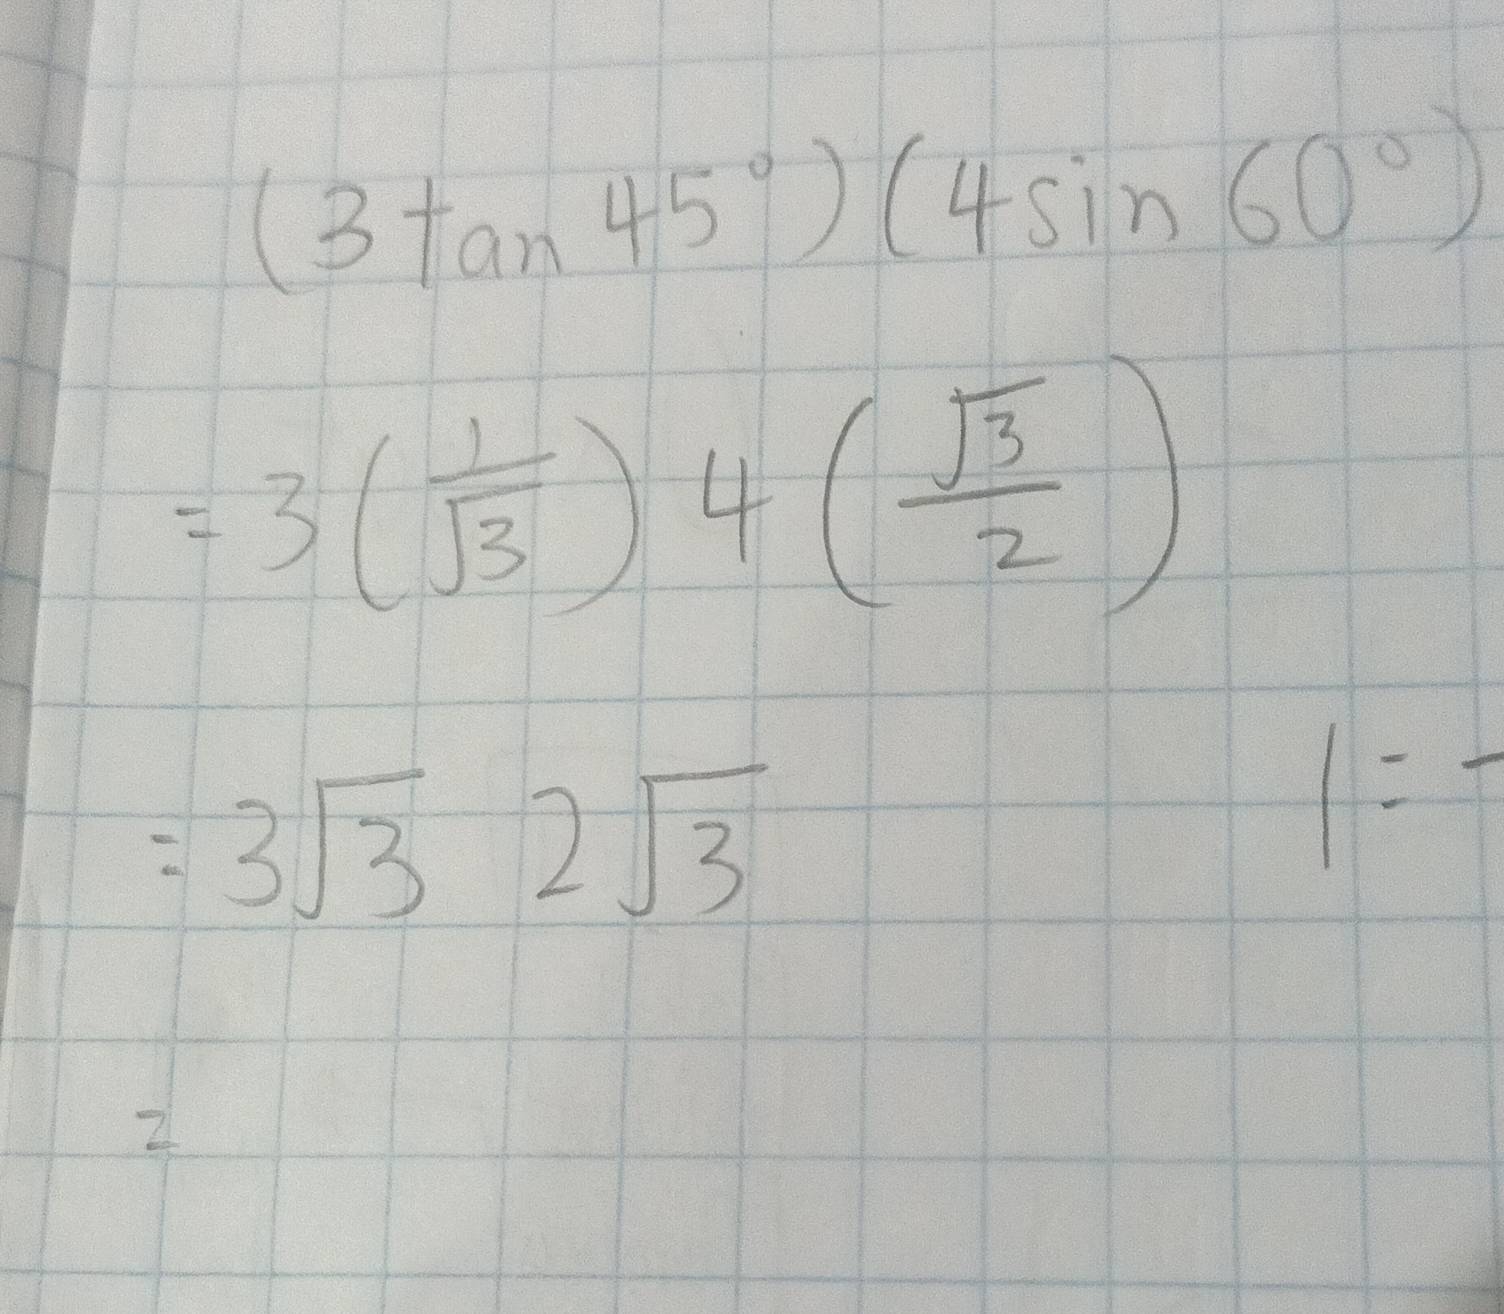 (3 tan 45°)(4 sin 60°)
= 3 (1/√3) 4 (√3/2)
= 3√3 2√3
1 = -
=